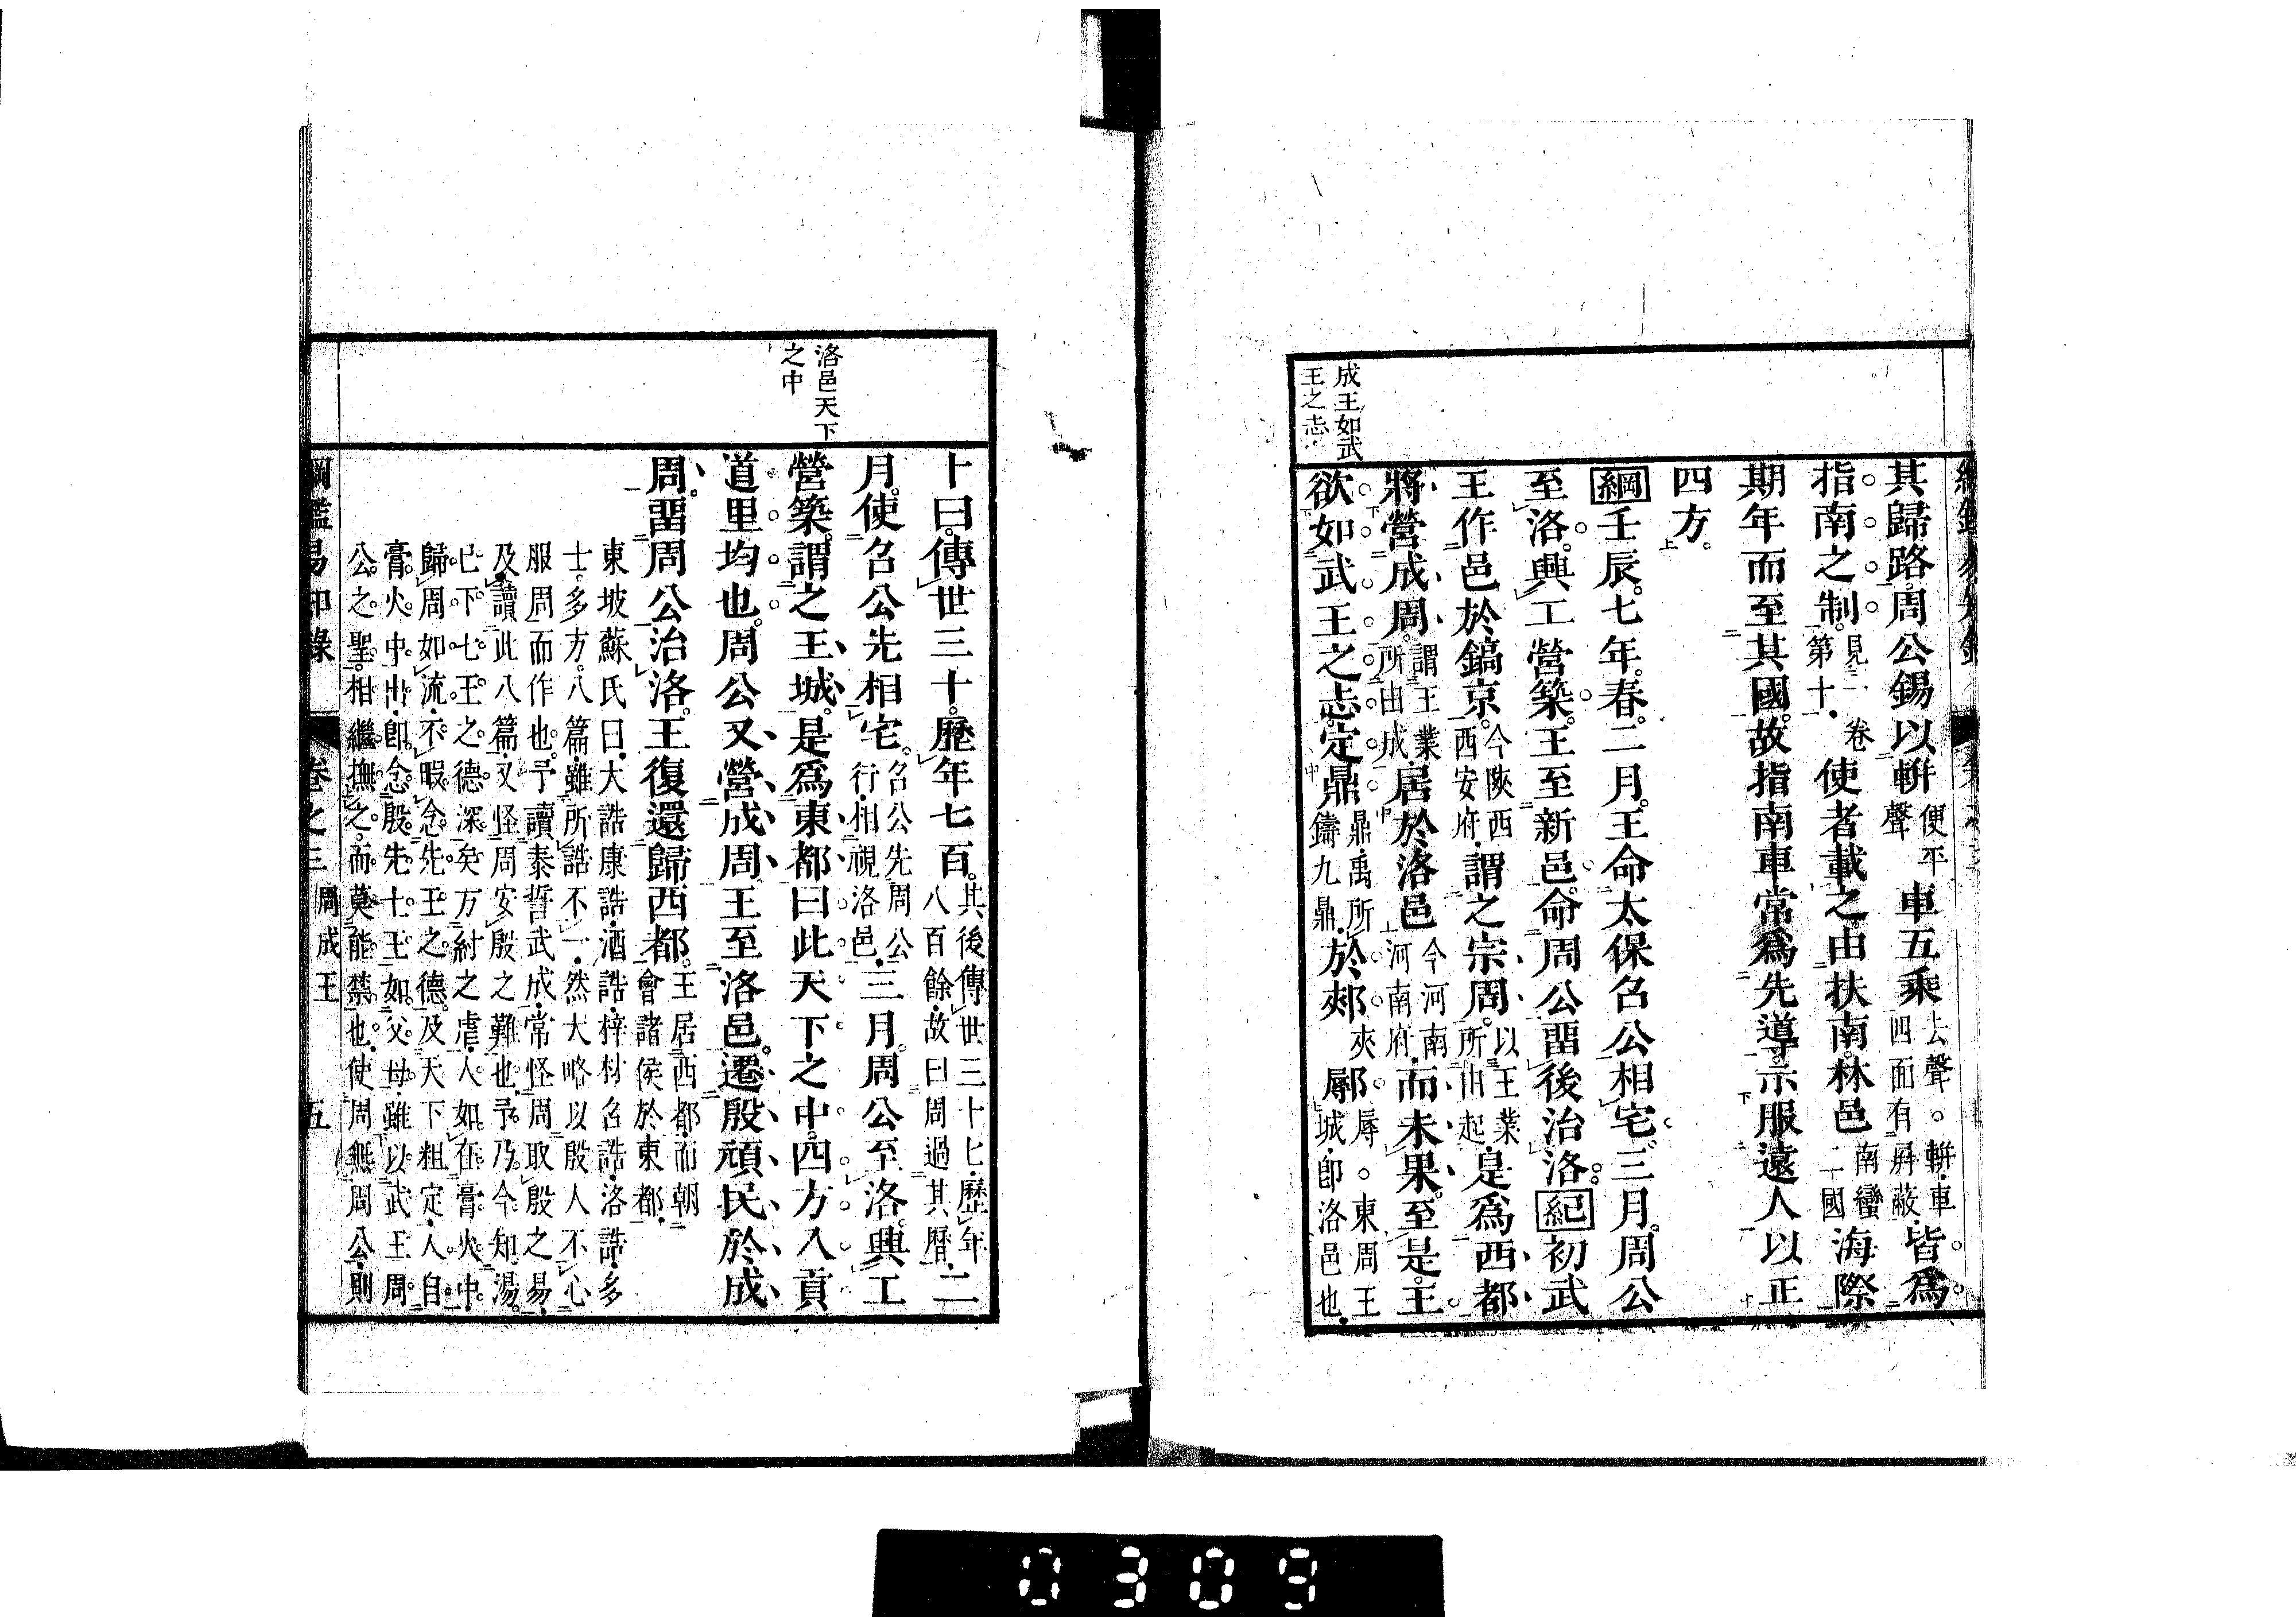 成王如武
王之志
其歸路。周公錫以軿便平聲車五乘去聲。軿車四面有屏蔽皆爲
指南之制。見一卷第十使者載之。由扶南林邑南蠻二國海際
期年而至其國。故指南車常爲先導。示服遠人以正
四方。
綱壬辰。七年。春。二月。王命太保召公相宅。三月。周公
至洛。興工營築。王至新邑。命周公畱後治洛。紀初武
王作邑於鎬京。今陝西西安府謂之宗周。以王業所由起是爲西都
將營成周。謂王業所由成居於洛邑今河南河南府而未果。至是。王
欲如武王之志。定鼎鼎禹所鑄九鼎於郟夾鄏辱。東周王城卽洛邑也
洛邑天下
之中
卜曰。傳世三十。歷年七百。其後傳世三十七歷年八百餘故曰周過其曆二
月。使召公先相宅。召公先周公行相視洛邑三月。周公至洛。興工
營築。謂之王城。是爲東都曰此天下之中。四方入貢
道里均也。周公又營成周王至洛邑。遷殷頑民於成
周。畱周公治洛。王復還歸西都。王居西都而朝會諸侯於東都
東坡蘇氏曰大誥康誥酒誥梓材召誥洛誥多
士多方八篇雖所誥不一然大略以殷人不心
服周而作也予讀泰誓武成常怪周取殷之易
及讀此八篇又怪周安殷之難也予乃今知湯
已下七王之德深矣方紂之虐人如在膏火中
歸周如流不暇念先王之德及天下粗定人自
膏火中出卽念殷先七王如父母雖以武王周
公之聖相繼撫之而莫能禁也使周無周公則
綱鑑易知錄 卷之三 周成王 五
0309